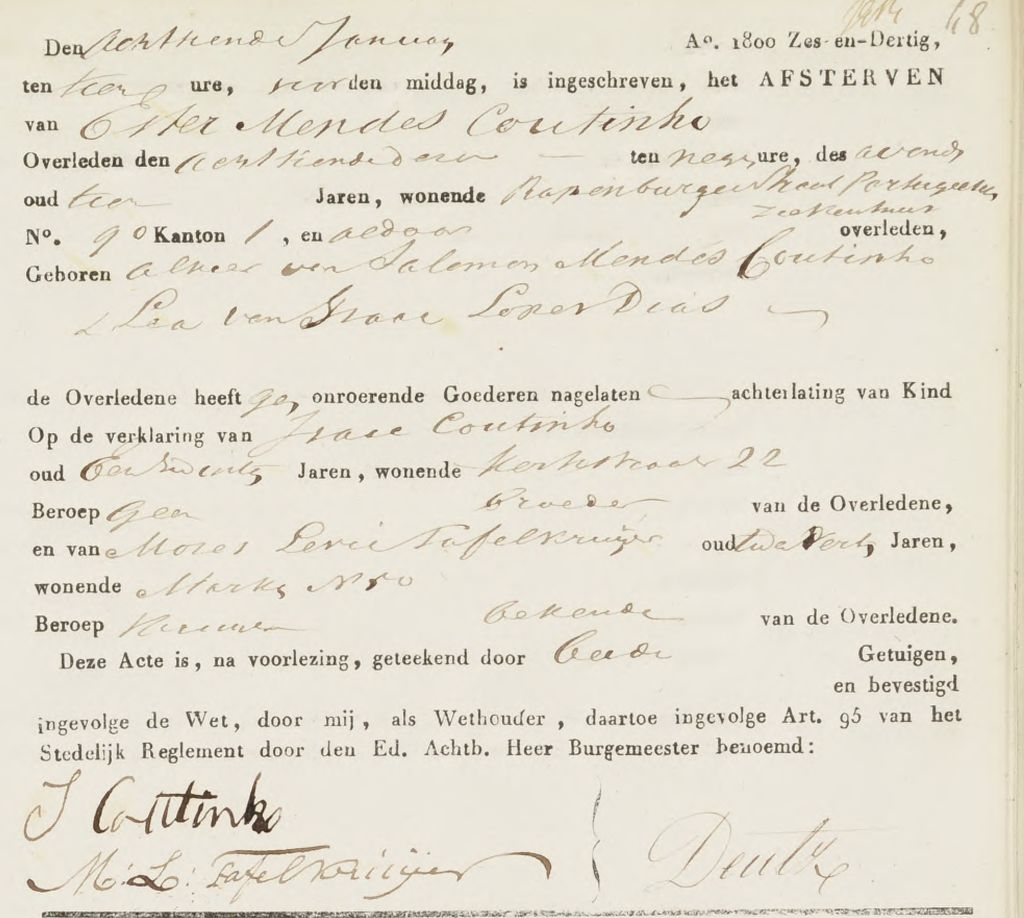 48
Den Achttiende January Ao. 1800 Zes-en-Dertig,
ten tien ure, voorden middag, is ingeschreven, het AFSTERVEN
van Ester Mendes Coutinho
Overleden den Achttiende dezer — ten negen ure, des avonds
oud tien Jaren, wonende Rapenburgerstraat Portugeesch
Ziekenhuis
No. 90 Kanton 1, en aldaar overleden,
Geboren alhier van Salomon Mendes Coutinho
& Lea van Isaac Lopes Dias
de Overledene heeft geen onroerende Goederen nagelaten achterlating van Kind
Op de verklaring van Isaac Coutinho
oud Jaren, wonende Kerkstraat 22
Beroep Geen broeder van de Overledene,
en van Moses Levie Tafelkruijer oud Jaren,
wonende Marke N 50
Beroep bekende van de Overledene.
Deze Acte is, na voorlezing, geteekend door beide Getuigen,
en bevestigd
ingevolge de Wet, door mij, als Wethouder, daartoe ingevolge Art. 95 van het
Stedelijk Reglement door den Ed. Achtb. Heer Burgemeester benoemd:
I Coutinho
M: L: Tafelkruijer Deutz